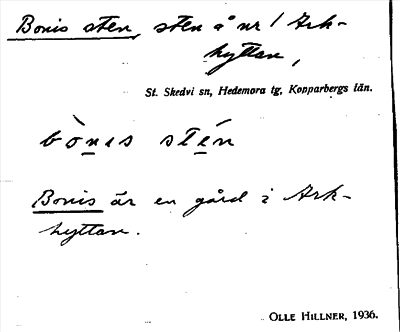 Bonis sten, sten å nr 1 Ark-
hyttan,
St. Skedvi sn, Hedemora tg, Kopparbergs län.
bònıs stén
Bonis är en gård i Ark-
hyttan.
OLLE HILLNER, 1936.